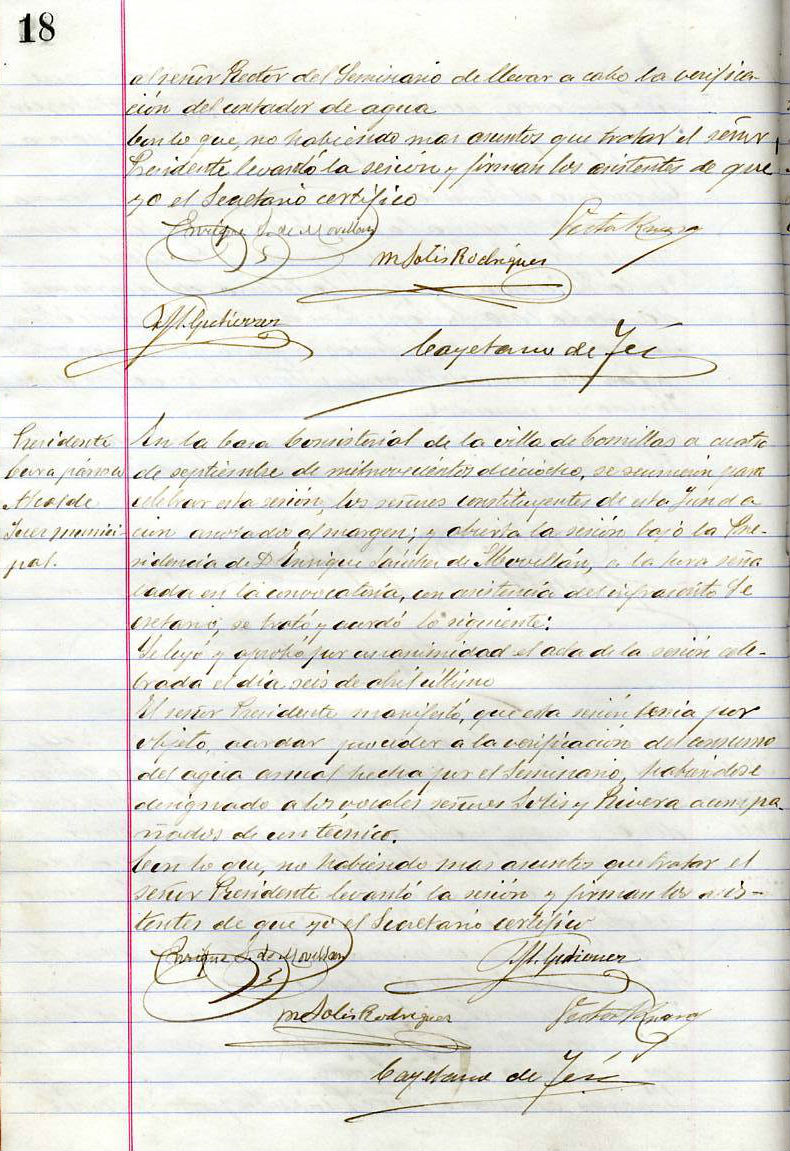 18
al señor Rector del Seminario de llevar a cabo la verifica-
ción del contador de agua
Con lo que, no habiendo mas asuntos que tratar el señor
Presidente levantó la sesión y firman los asistentes de que
yo el Secretario certifico
Enrique S. de Movellan
Victor Rivera
M Solis Rodriguez
M. Gutierrez
Cayetano de
Presidente
Cura párroco
Alcalde
Juez munici-
pal.
En la Casa Consistorial de la villa de Comillas a cuatro
de septiembre de mil novecientos dieciocho, se reunieron para
celebrar esta sesión, los señores constituyentes de esta Funda
cion anotados al margen; y abierta la sesión bajo la Pre-
sidencia de D Enrique Sánchez de Movellán, a la hora seña
lada en la convocatoria, con asistencia del infrascrito Se
cretario, se trató y acordó lo siguiente:
Se leyó y aprobó por unanimidad el acta de la sesión cele-
brada el día seis de abril último
El señor Presidente manifestó, que esta sesión tenia por
objeto, acordar proceder a la verificación del consumo
del agua anual hecha por el Seminario, habiendose
designado a los vocales señores Solis y Rivera acompa
ñados de un técnico.
Con lo que, no habiendo mas asuntos que tratar el
señor Presidente levantó la sesión y firman los asis-
tentes de que yo el Secretario certifico
Enrique S. de Movellan
M. Gutierrez
M Solis Rodriguez
Victor Rivera
Cayetano de